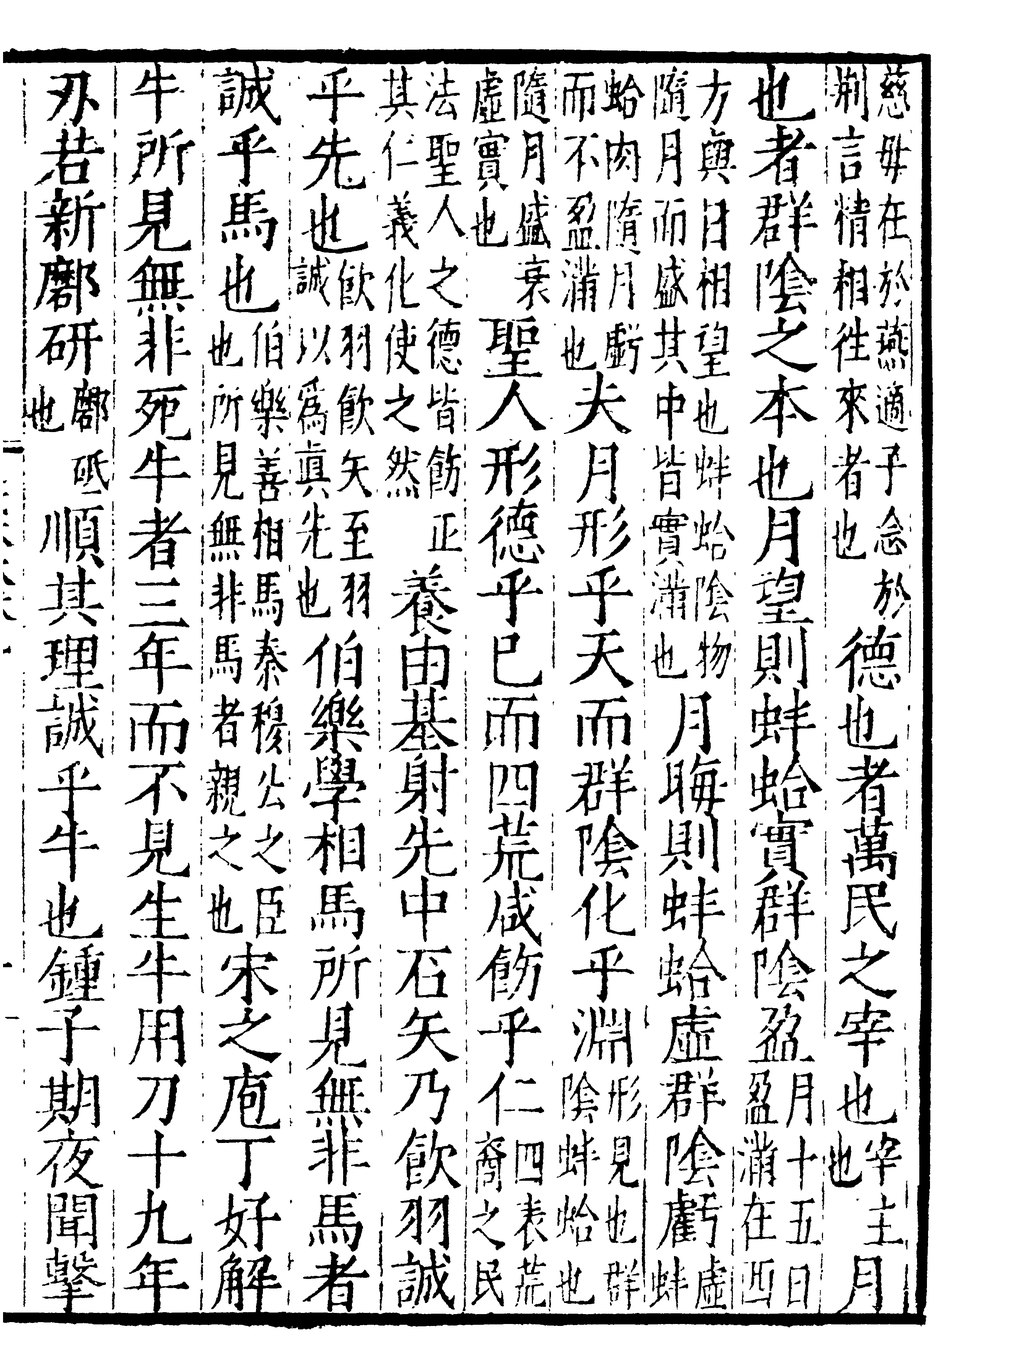 慈母在於燕適子念於荆言精相往來者也德也者萬民之宰也宰主也月
也者群陰之本也月望則蚌蛤實群陰盈月十五日盈滿在西
方與日相望也蚌蛤陰物隨月而盛其中皆實滿也月晦則蚌蛤虛群陰虧虛蚌
蛤肉隨月虧而不盈滿也夫月形乎天而群陰化乎淵形見也群陰蚌蛤也
隨月盛衰虛實也聖人形德乎已而四荒咸飭乎仁四表荒裔之民
法聖人之德皆飭正其仁義化使之然養由基射先中石矢乃飲羽誠
乎先也飲羽飲矢至羽誠以爲眞先也伯樂學相馬所見無非馬者
誠乎馬也伯樂善相馬秦穆公之臣也所見無非馬者親之也宋之庖丁好解
牛所見無非死牛者三年而不見生牛用刀十九年
刃若新䃺研䃺砥也順其理誠乎牛也鍾子期夜聞擊